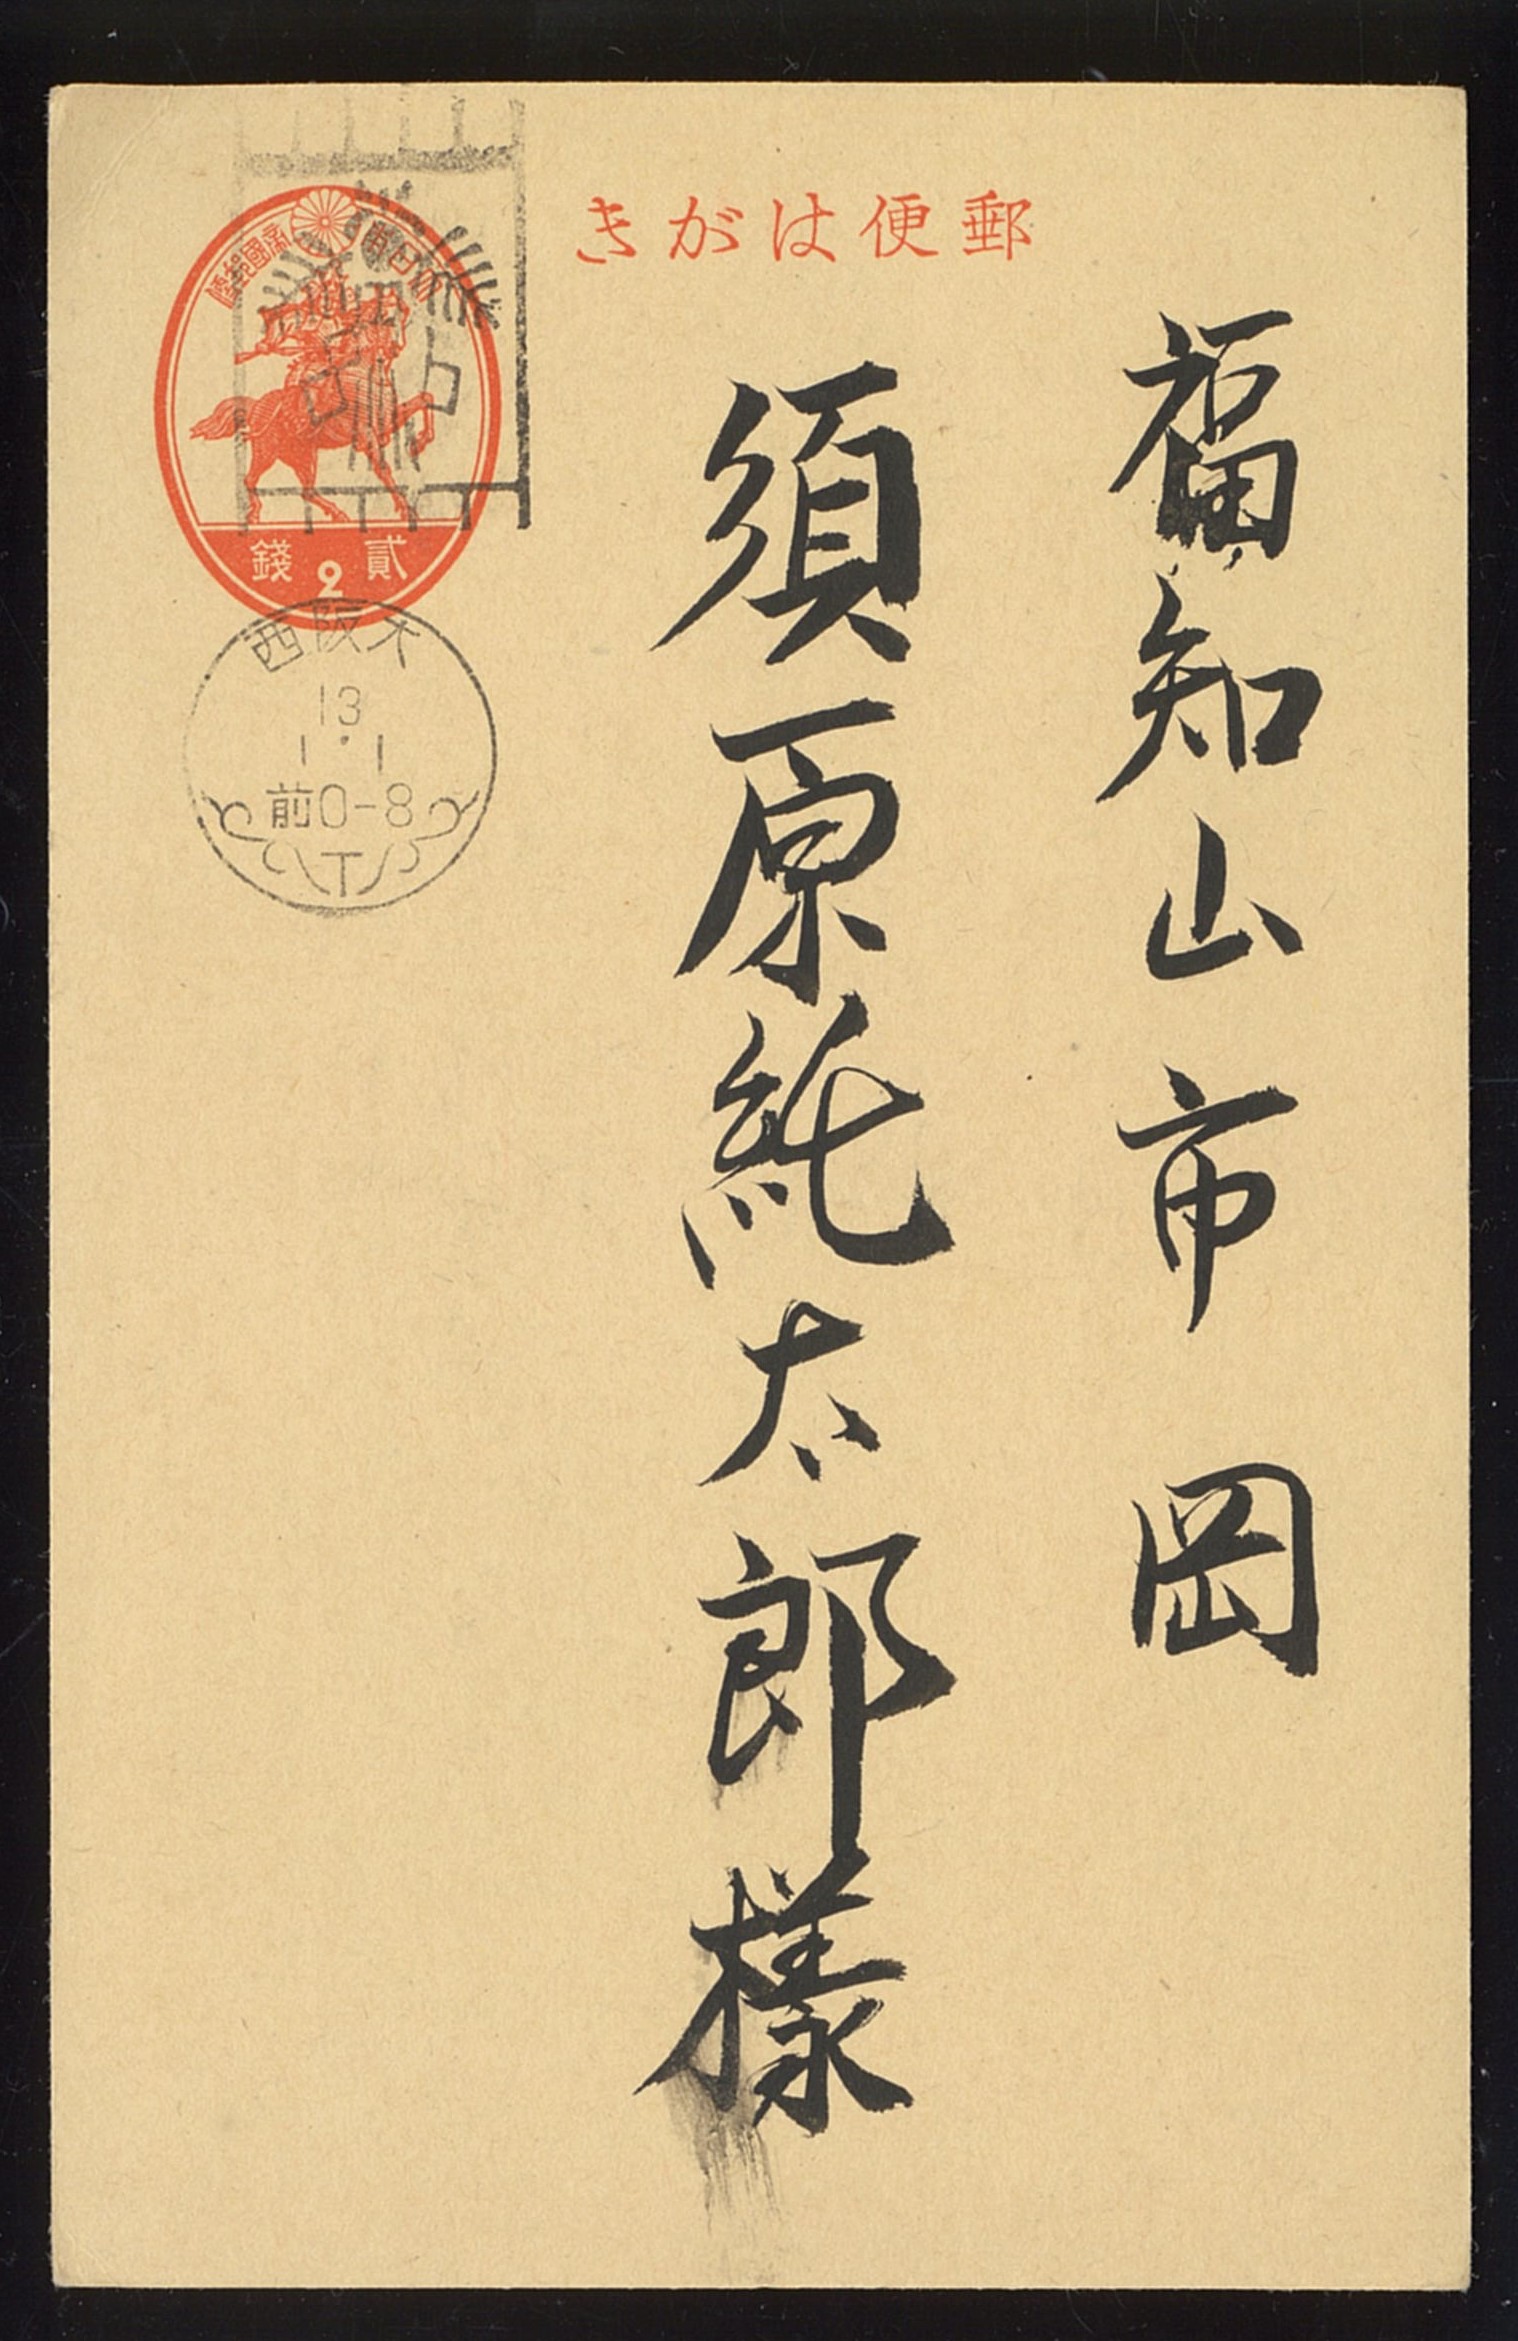 郵便はがき
福知山市 岡
須原純太郎様
大日本帝國郵便
貳 2 錢
大阪西
13
1・1
前0-8
T